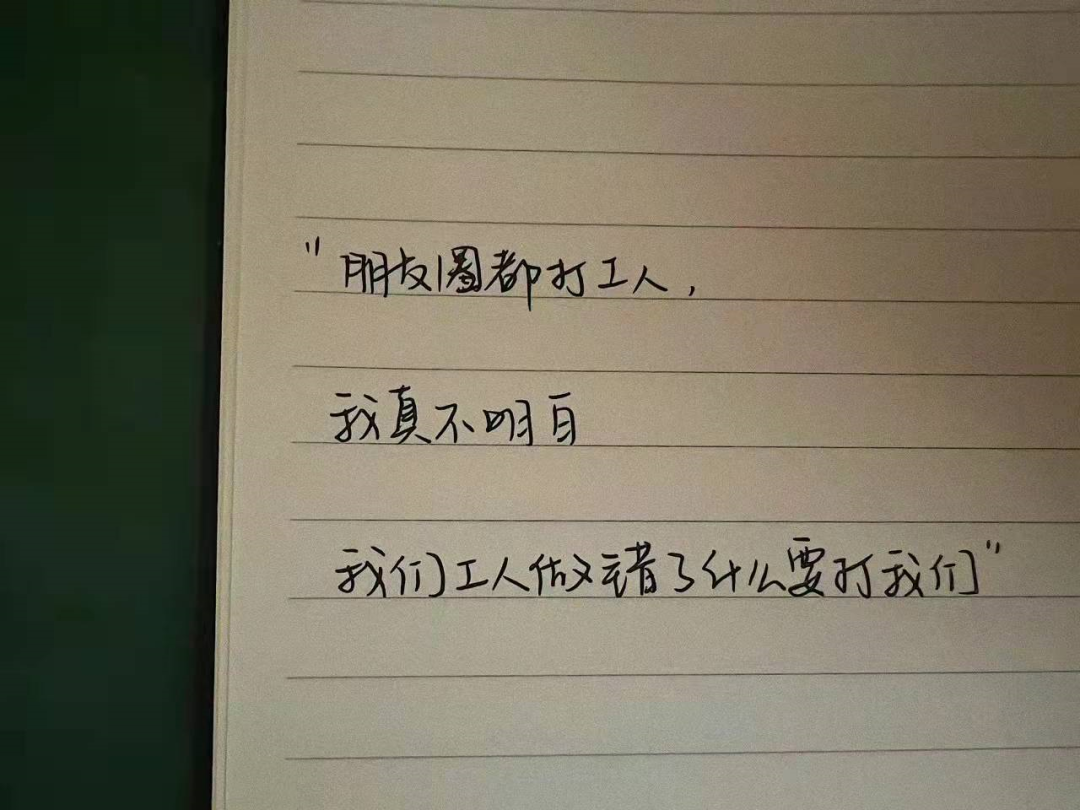 "朋友圈都打工人，
我真不明白
我们工人做错了什么要打我们"